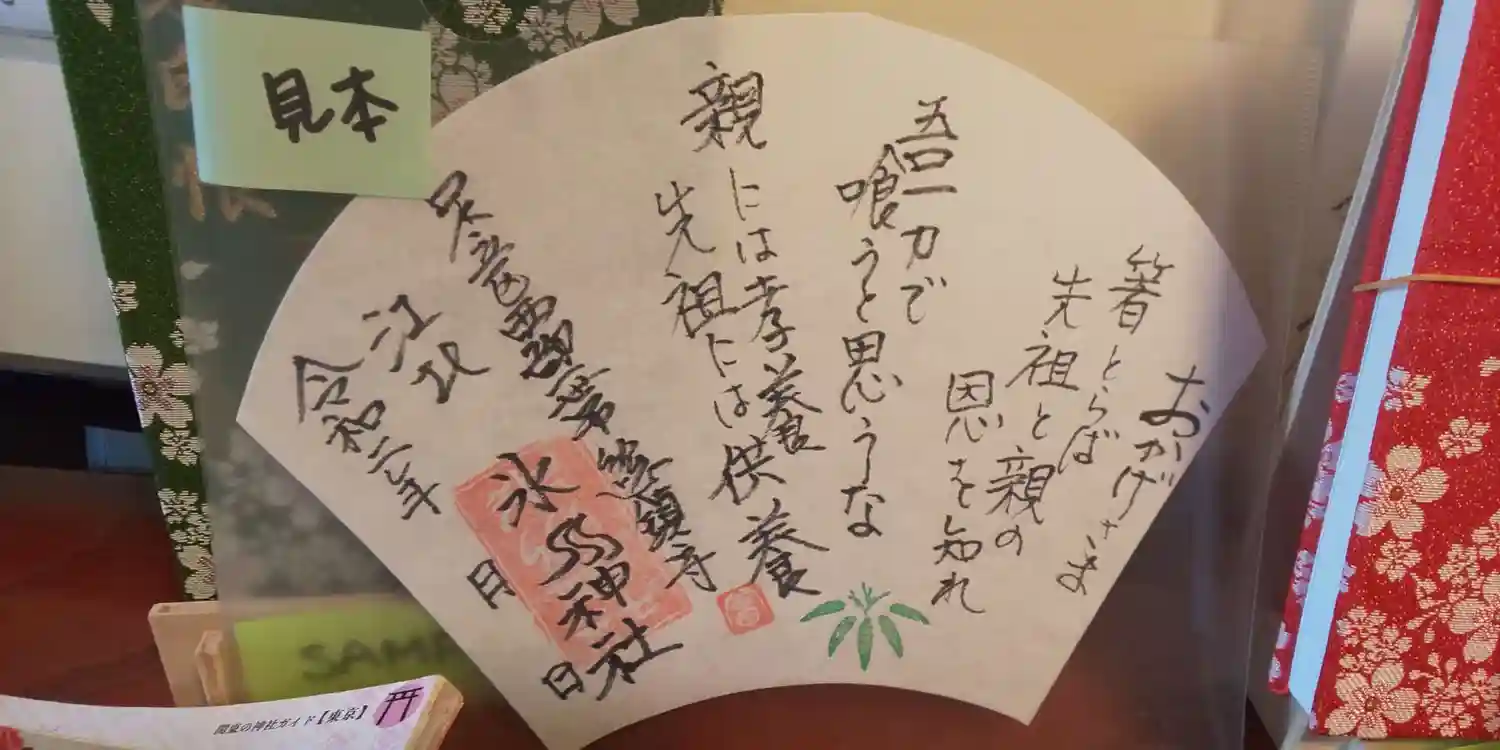 見本
おかげさま
箸とらば
先祖と親の
恩を知れ
吾一力で
喰うと思うな
親には孝養
先祖には供養
江北
氷川神社
令和二年
月
日
関東の神社ガイド【東京】